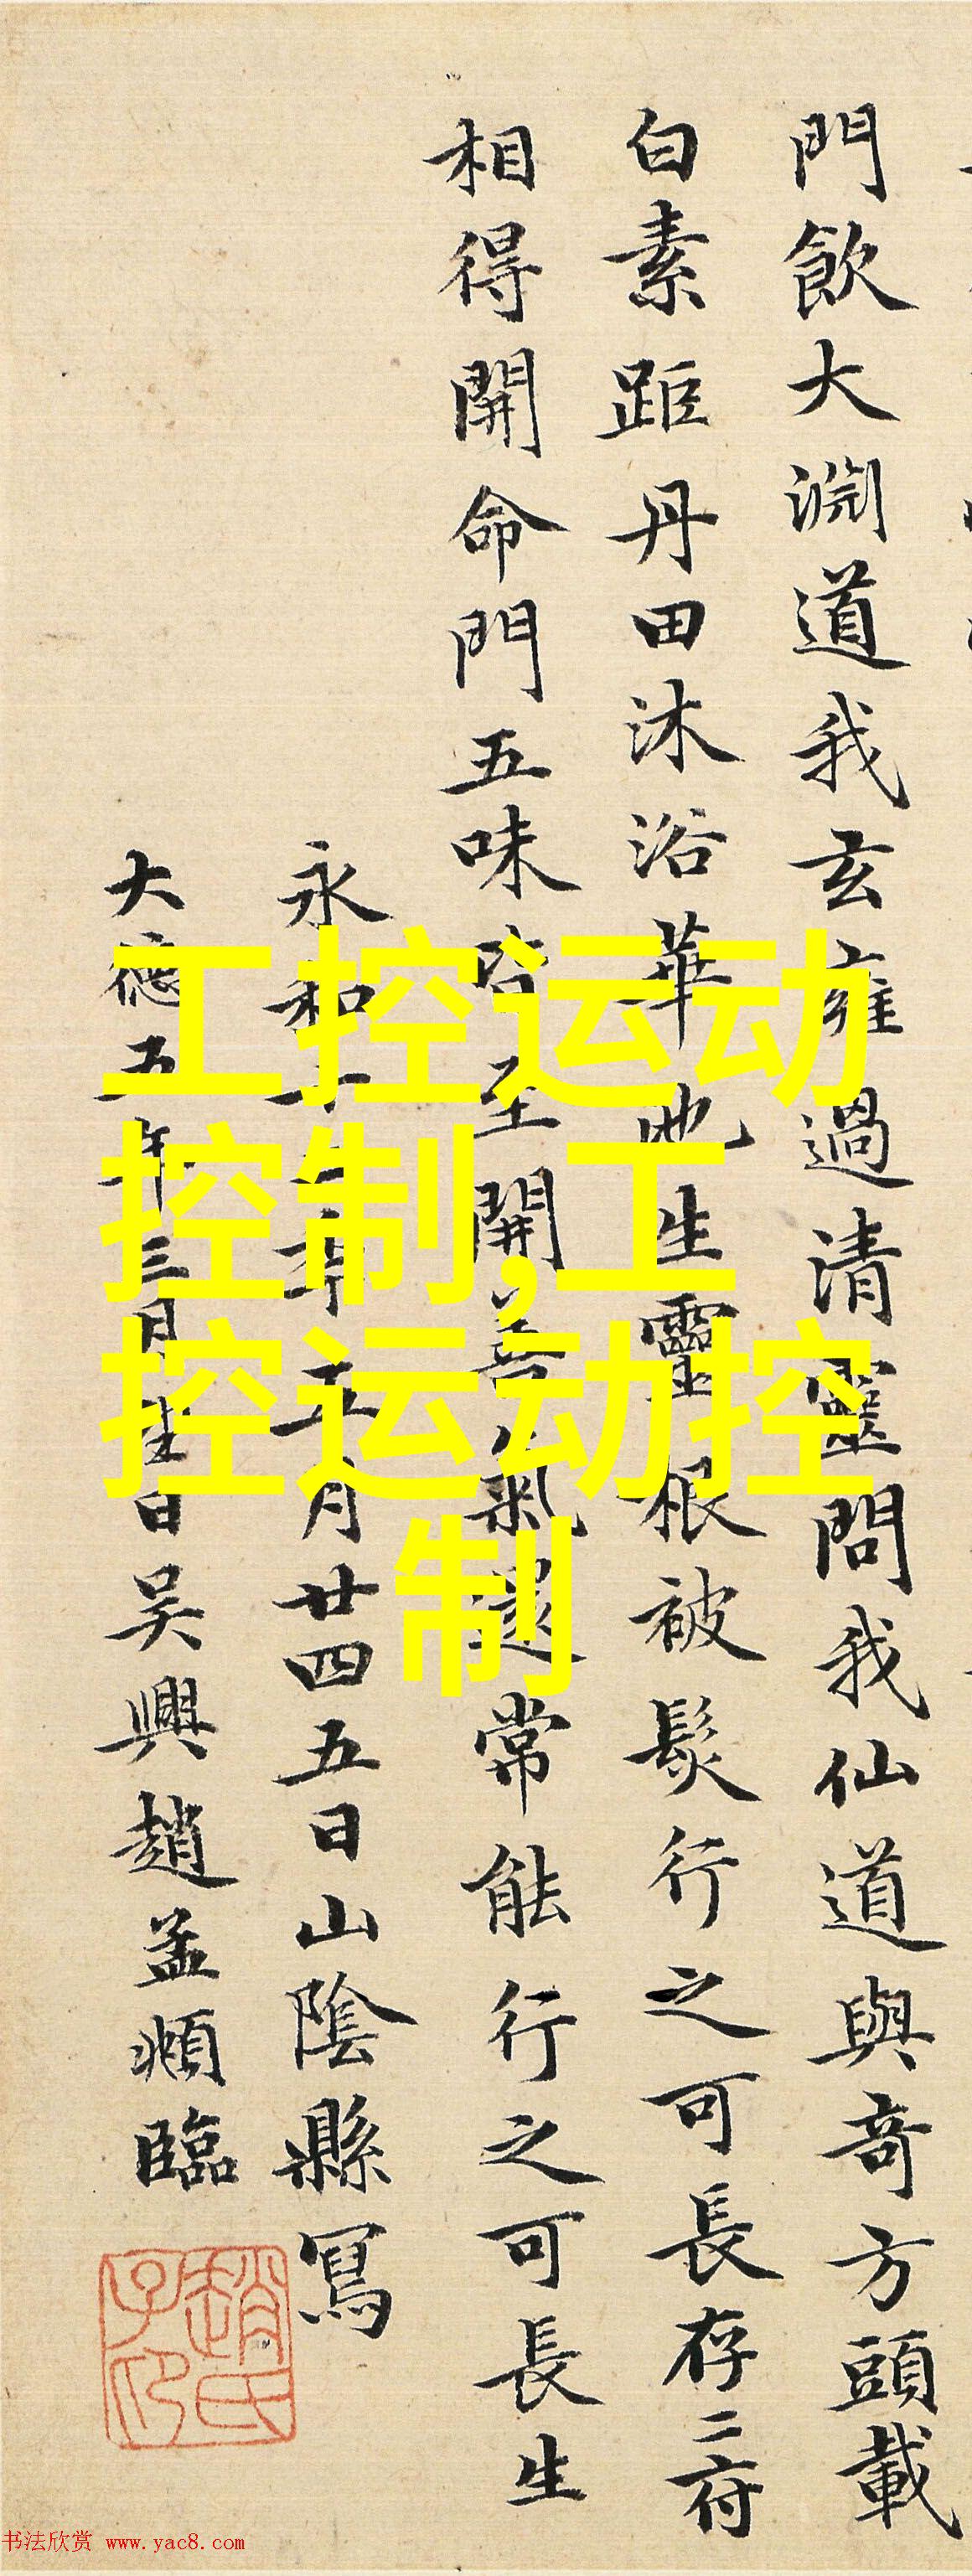 門飲大淵道我玄雍過清靈問我仙道與奇方頭載
白素距丹田沐浴華池生靈根被髮行之可長存二府
相得開命門五味皆至開善氣還常能行之可長生
永和十二年五月廿四五日山陰縣寫
大德五年三月廿日吴興趙孟頫臨
工控运动
控制,工
控运动控
制
趙氏子印
书法欣赏 www.yac8.com